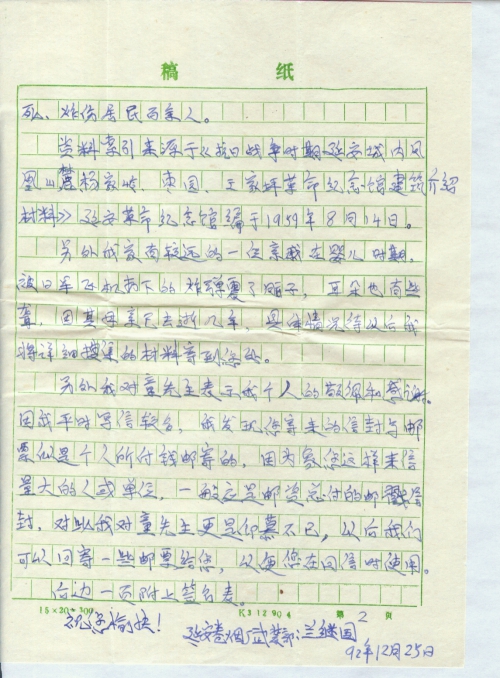 稿 纸
死、炸伤居民百余人。
资料索引来源于《抗日战争时期延安城内凤
凰山麓杨家岭、枣园、王家坪革命纪念馆建筑介绍
材料》延安革命纪念馆编于1959年8月14日。
另外我家有较远的一位亲戚在婴儿时期,
被日军飞机扔下的炸弹震了脑子,耳朵也有些
聋,因其母亲已去逝几年,具体情况待以后我
将详细搜集的材料寄到您处。
另外我对童先生表示我个人的敬佩和感谢。
因我平时写信较多,我发现您寄来的信封与邮
票似是个人所付钱邮寄的,因为象您这样来信
量大的人或单位,一般应是邮资总付的邮戳信
封,对此我对童先生更是仰慕不已,以后我们
可以回寄一些邮票给您,以便您在回信时使用。
右边一页附上签名表。
15×20=300 K312904 第 2 页
祝您愉快!
延安卷烟厂武装部:兰继国
92年12月25日